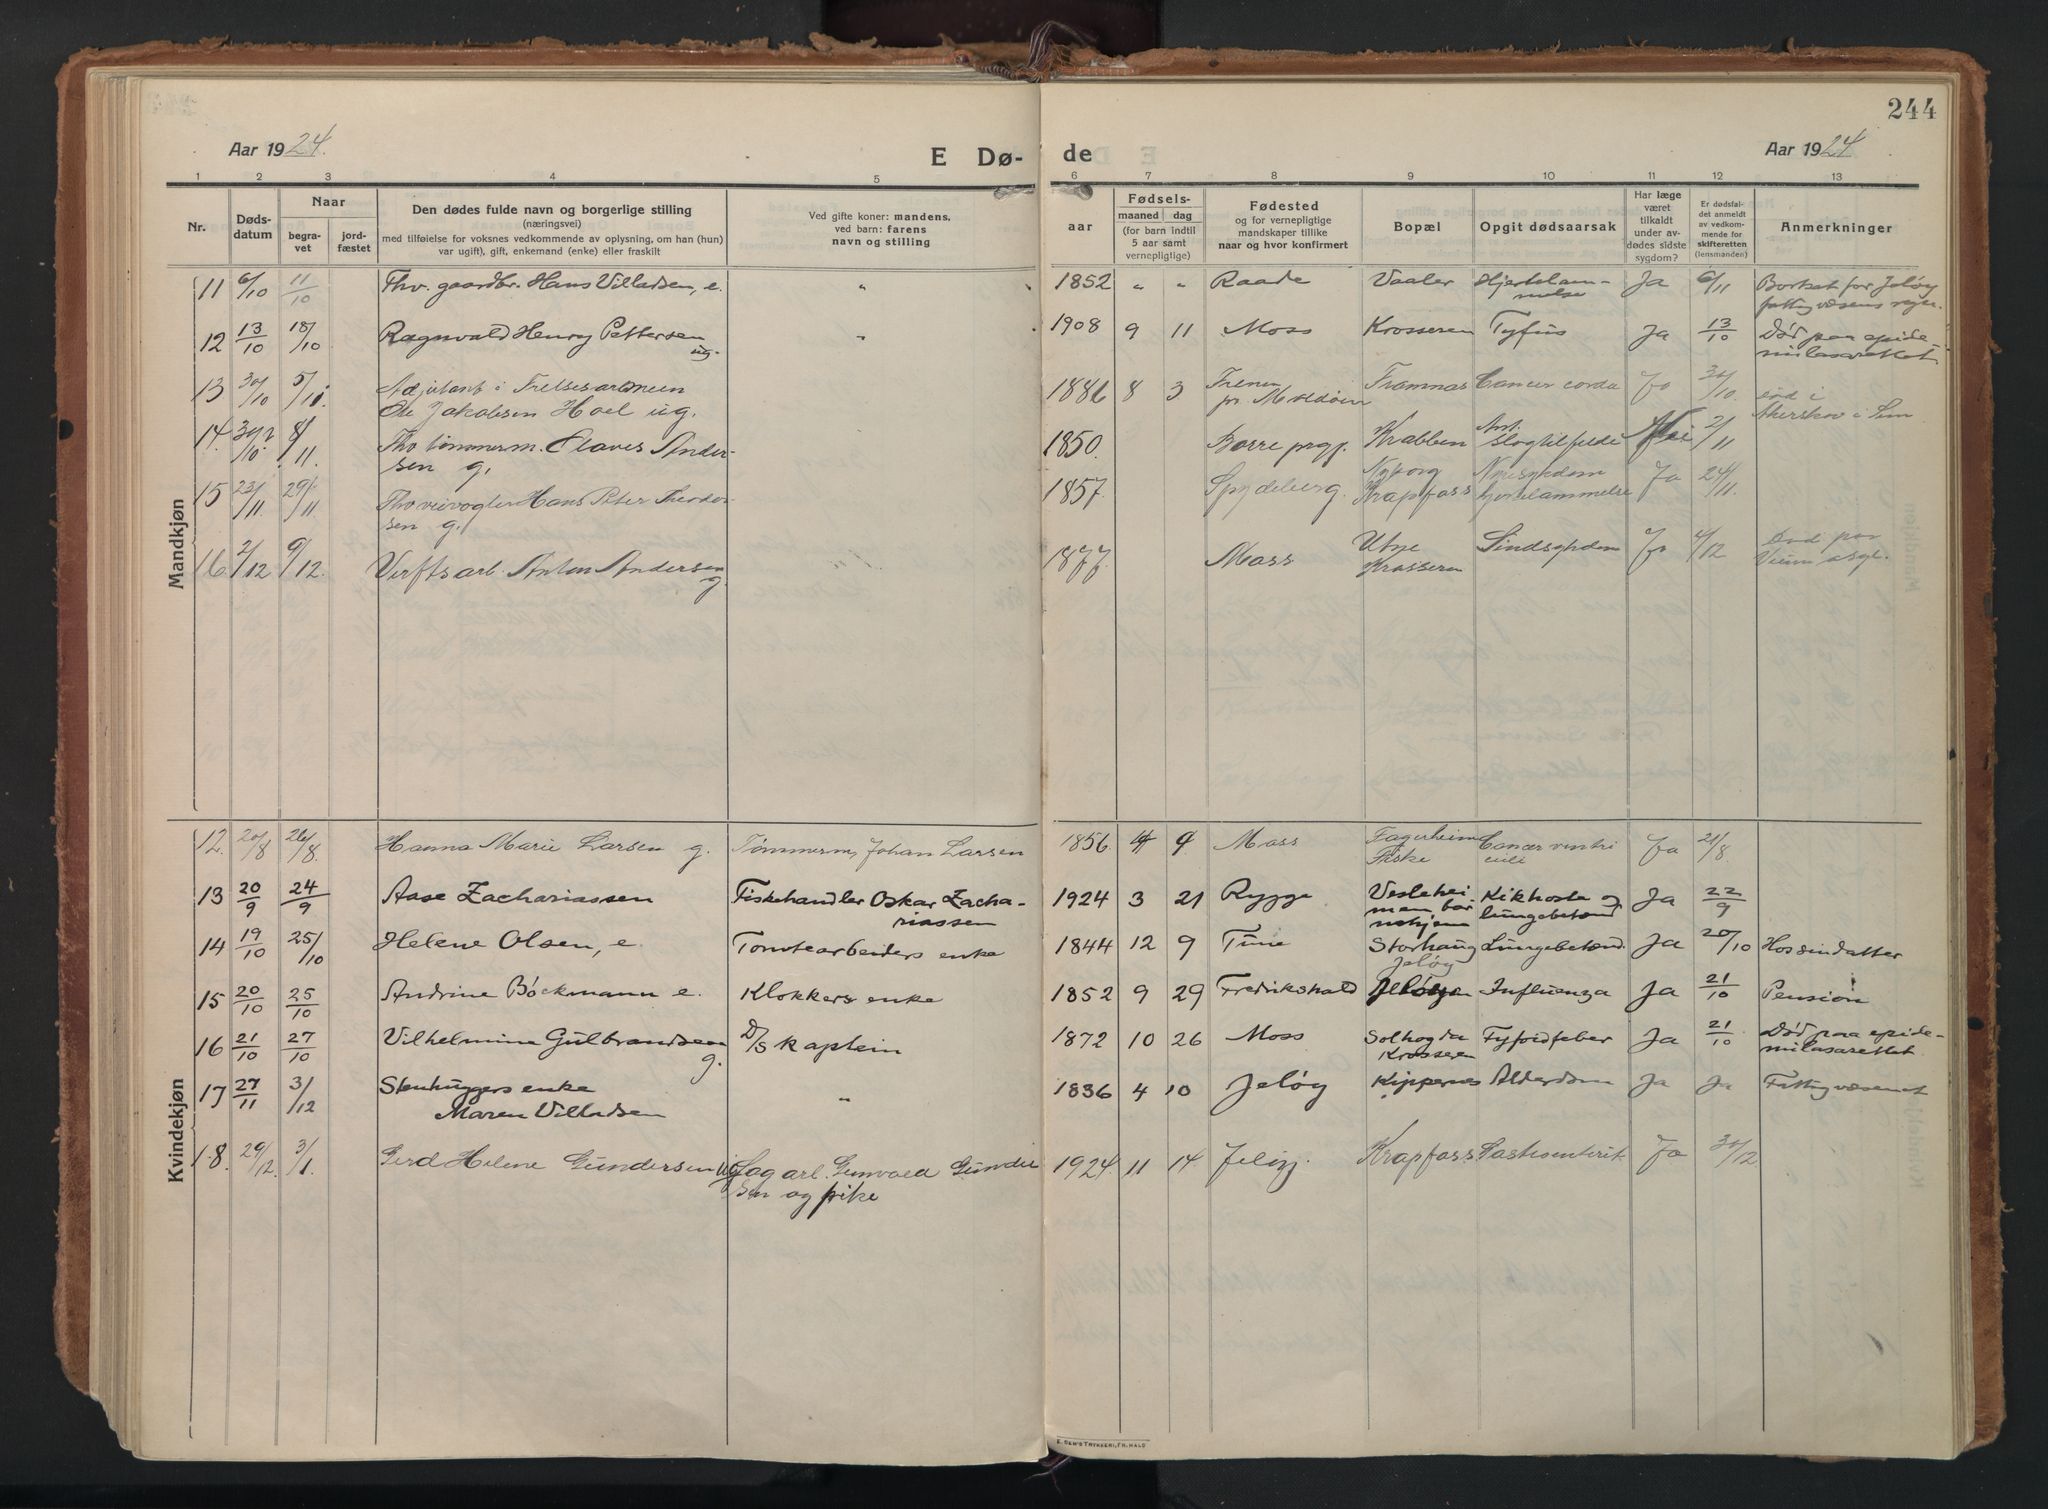 244
Aar 1924.
E Dø-
de
Aar 1924
1 2 3 4 5 6 7 8 9 10 11 12 13
Nr.
Døds-
datum
Naar
begra-
vet
jord-
fæstet
Den dødes fulde navn og borgerlige stilling
(næringsvei)
med tilføielse for voksnes vedkommende av oplysning, om han (hun)
var ugift), gift, enkemand (enke) eller fraskilt
Ved gifte koner: mandens,
ved barn: farens
navn og stilling
aar
Fødsels-
maaned dag
(for barn indtil
5 aar samt
vernepligtige)
Fødested
og for vernepligtige
mandskaper tillike
naar og hvor konfirmert
Bopæl
Opgit dødsaarsak
Har læge
været
tilkaldt
under av-
dødes sidste
sygdom?
Er dødsfal-
det anmeldt
av vedkom-
mende for
skifteretten
(lensmanden)
Anmerkninger
Mandkjøn
11 6/10 11/10 Thv. gaardbr. Hans Villadsen, e. " 1852 " " Raade Vaaler Hjertelam-
melse Ja 6/11 Bortsat for Jeløy
fattigvæsens regn.
12 13/10 18/10 Ragnvald Henry Pettersen
ug. " 1908 9 11 Moss Krosseren Tyfus Ja 13/10 Død paa epide-
milasarettet
13 30/10 5/11 Adjutant i Frelsesarmeen
Ole Jakobsen Hoel ug. 1886 8 3 Framnas Cancer corda Ja 30/10 død i
Akershov i
14. 30/10 8/11 Thv tømmerm. Olaves Ander-
sen g. 1850. Borre prgj. Krabben Ant.
slagtilfelde Nei 2/11
15 23/11 29/11 Thv veivogter Hans Peter Theodor-
sen g. 1857. Spydeberg. Nyborg
Krapfoss Nyresykdom
hjertelammelse Ja 24/11.
16 2/12 9/12. Verftsarb. Anton Andersen
g. 1877. Moss Utye
Krosseren Sindsykdom Ja 4/12 Død paa
asyl.
Kvindekjøn
12. 20/8 26/8. Hanna Marie Larsen g. Tømmerm. Johan Larsen 1856 4 9 Moss Fagerheim
Fiske Cancer ventri
culi Ja 21/8.
13 20/9 24/9 Aase Zachariassen Fiskehandler Oskar Zacha-
riassen 1924 3 21 Rygge Veslehei
men bar
nehjem Kikhoste og
lungebetænd Ja 22/9
14 19/10 25/10 Helene Olsen, e. Tomtearbeiders enke 1844 12 9 Tune Storhaug
Jeløy Lungebetænd. Ja 20/10 Hos sin datter
15 20/10 25/10 Andrine Böckmann e. Klokkers enke 1852 9 29 Fredrikshald Influenza Ja 21/10 Pension
16 21/10 27/10 Vilhelmine Gulbrandsen
g. D/S kaptein 1872 10 26 Moss Solhog da
Krosseren Tyfoidfeber Ja 21/10 Død paa epide-
milasarettet.
17 27/11 3/12 Stenhuggers enke
Maren Villadsen " 1836 4 10 Jeløy Kippernes Alderdom Ja Ja Fattigvæsenet
18. 29/12. 3/1. Gerd Helene Gundersen ug Sagarb. Gunvald Gunder
sen og pike 1924. 11 14 Jeløy. Krapfoss Gastroenterit. Ja 30/12
E. SEM'S TRYKKERI, FR.HALD